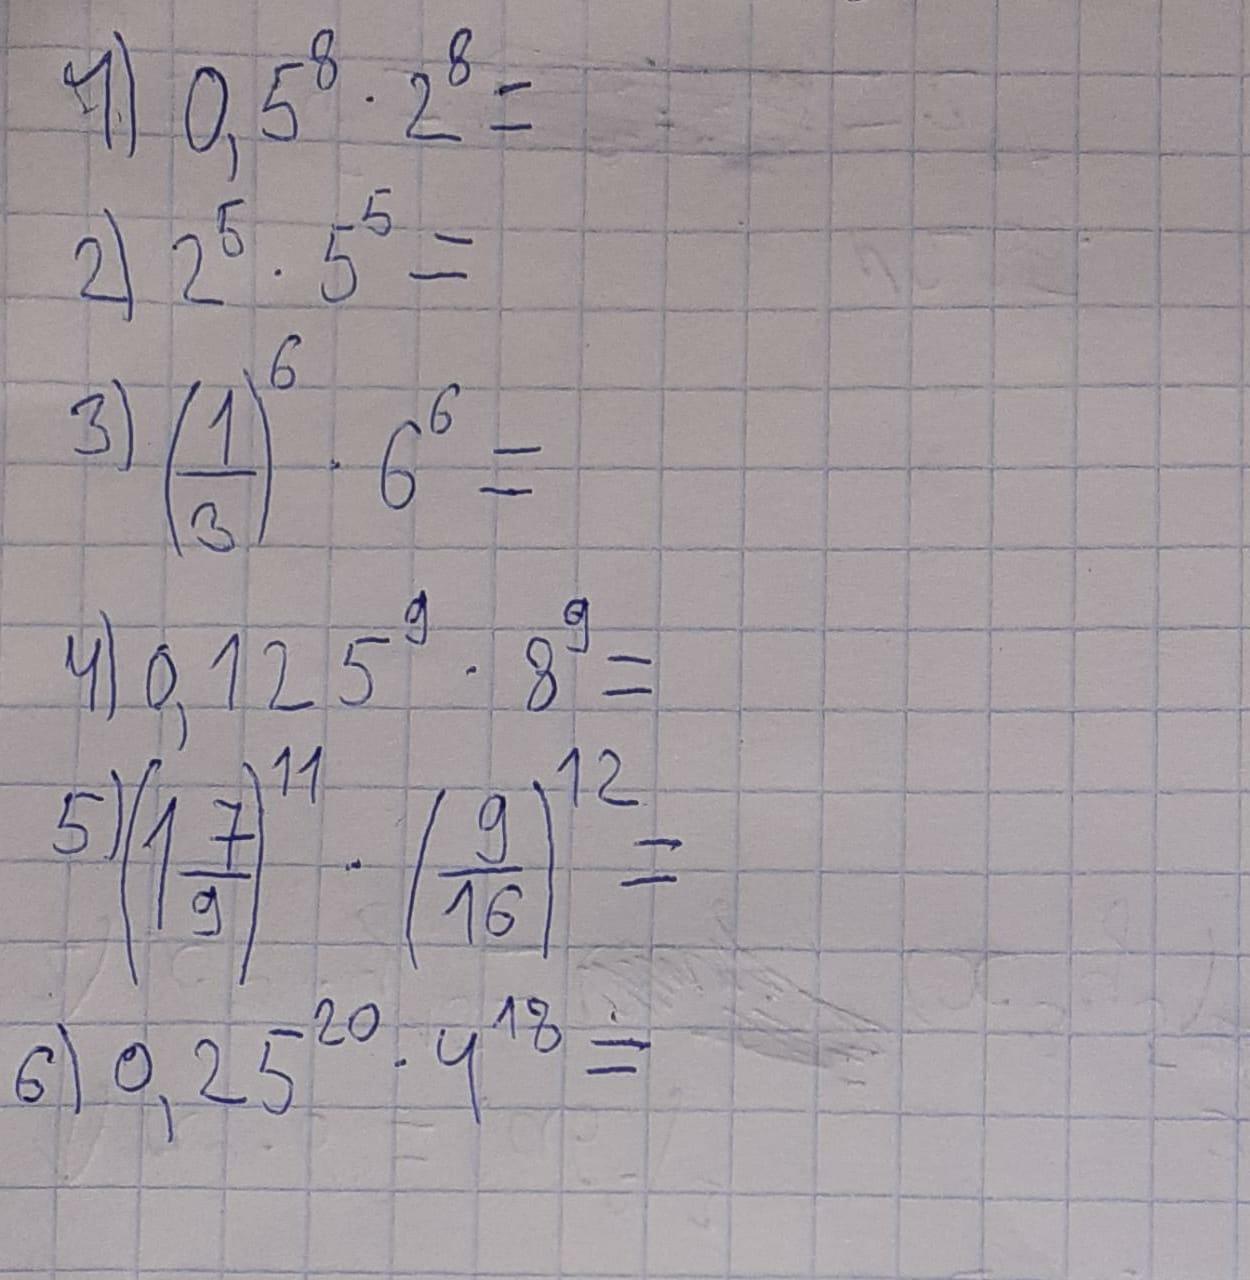 1) 0,5⁸ · 2⁸ =
2) 2⁵ · 5⁵ =
3) (1/3)⁶ · 6⁶ =
4) 0,125⁹ · 8⁹ =
5) (1 7/9)¹¹ · (9/16)¹² =
6) 0,25²⁰ · 4¹⁸ =